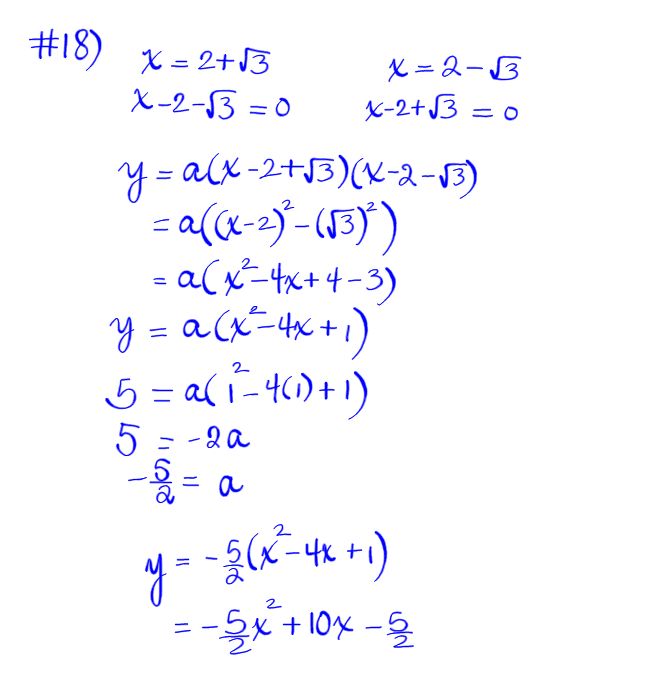 #18)
x = 2+√3    x = 2-√3
x-2-√3 = 0    x-2+√3 = 0
y = a(x-2+√3)(x-2-√3)
= a((x-2)²-(√3)²)
= a(x²-4x+4-3)
y = a(x²-4x+1)
5 = a(1²-4(1)+1)
5 = -2a
-5/2 = a
y = -5/2(x²-4x+1)
= -5/2x²+10x-5/2